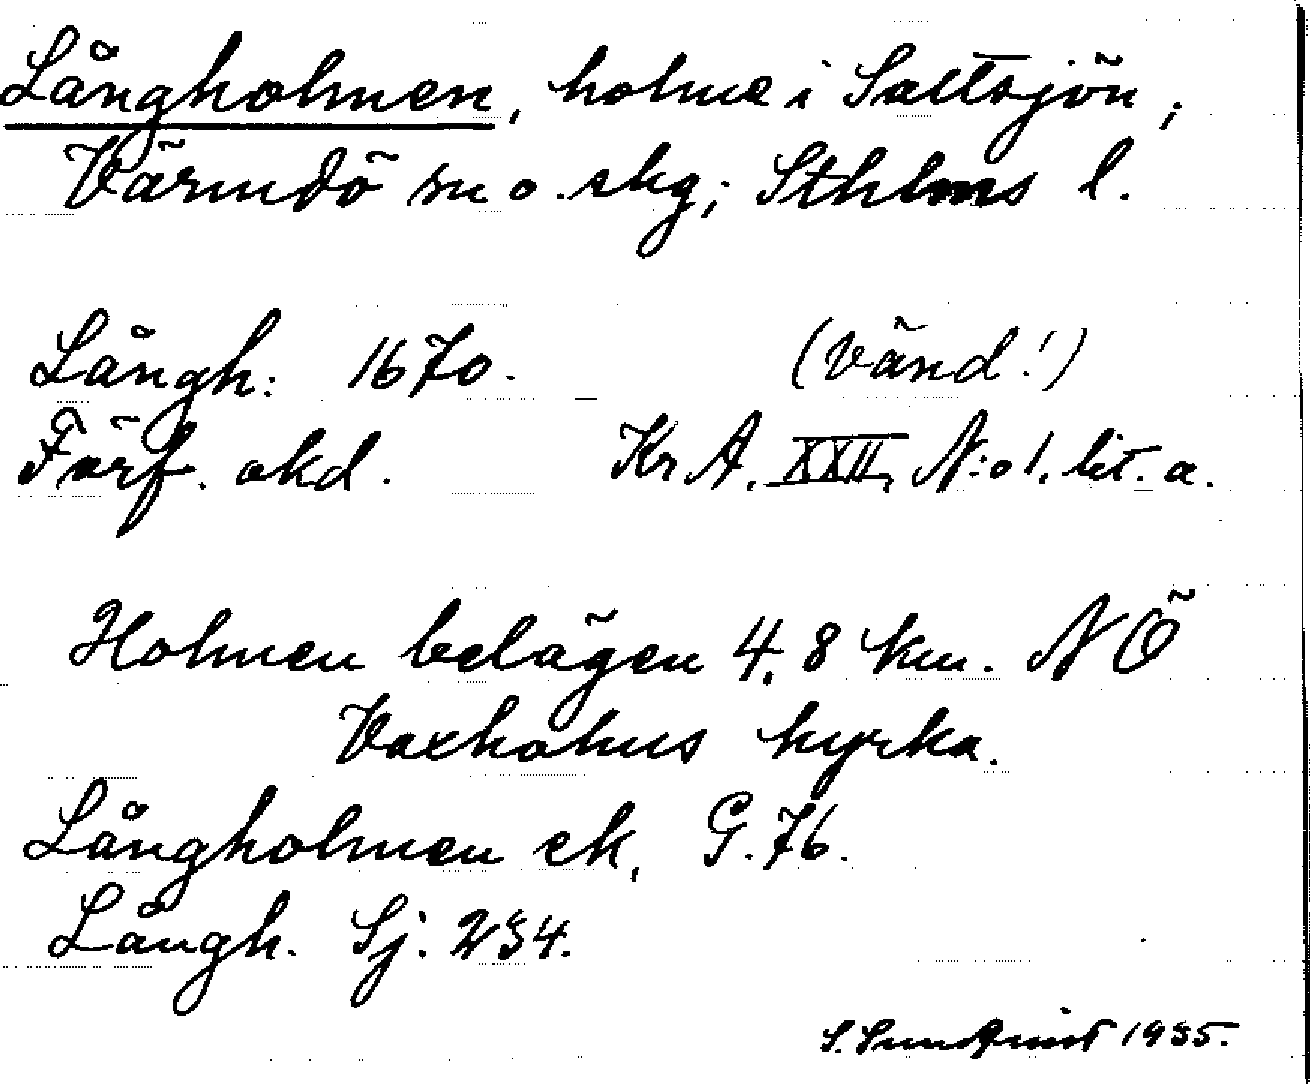 Långholmen, holme i Saltsjön;
Värmdö sn o. skg; Sthlms l.
Långh: 1670. (Vänd!)
Förf. okd. Kr A. XXII, N:o 1. lit. a.
Holmen belägen 4,8 km. NÖ
Vaxholms kyrka.
Långholmen ek, G.76.
Långh. Sj. 234.
S. Sundqvist 1935.